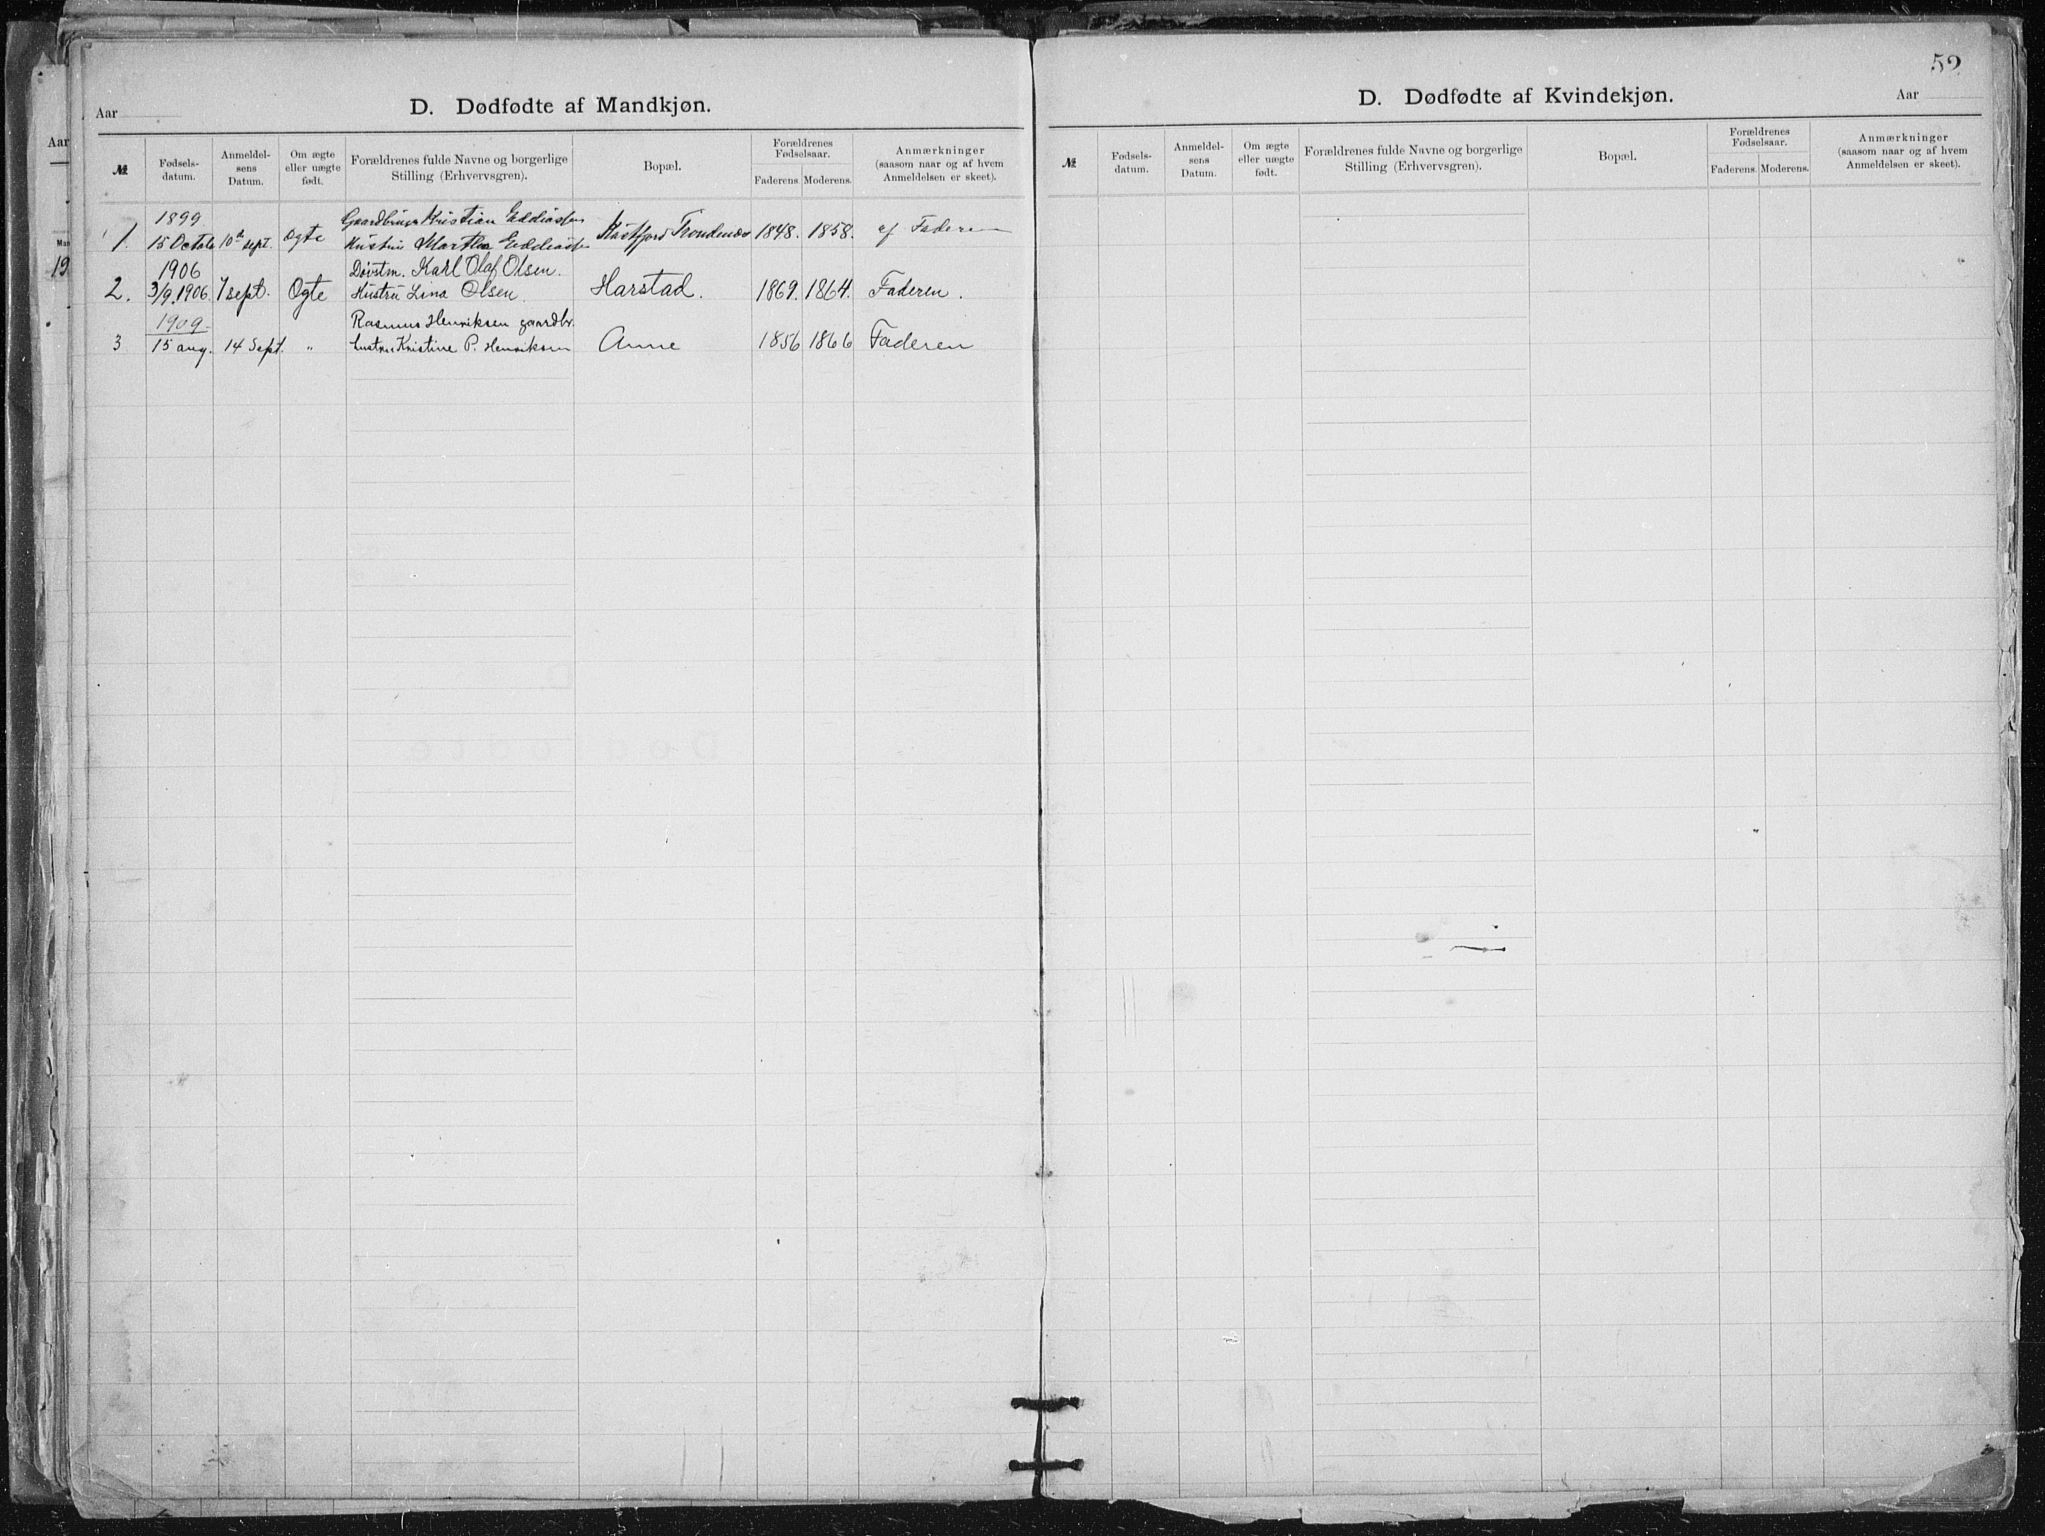 Aar
D. Dødfødte af Mandkjøn.
№
Fødsels-
datum.
Anmeldel-
sens
Datum.
Om ægte
eller uægte
født.
Forældrenes fulde Navne og borgerlige
Stilling (Erhvervsgren).
Bopæl.
Forældrenes
Fødselsaar.
Faderens. Moderens.
Anmærkninger
(saasom naar og af hvem
Anmeldelsen er skeet).
1899
Gaardbruger Kristian
1. 15 Octob 10th sept. Ogte Hustru Martha Trondenæs 1848. 1858. af Faderen
1906
Karl Olaf Olsen.
2. 3/9.1906. 7 sept. Ogte Hustru Lina Olsen. Harstad. 1869. 1864. Faderen.
1909
Rasmus Henriksen gaardbr.
3 15 aug. 14 Sept. " hustru Kristine P. Henriksen Anne 1856 1866 Faderen
Aar
19
52
D. Dødfødte af Kvindekjøn.
Aar
№
Fødsels-
datum.
Anmeldel-
sens
Datum.
Om ægte
eller uægte
født.
Forældrenes fulde Navne og borgerlige
Stilling (Erhvervsgren).
Bopæl.
Forældrenes
Fødselsaar.
Faderens. Moderens.
Anmærkninger
(saasom naar og af hvem
Anmeldelsen er skeet).